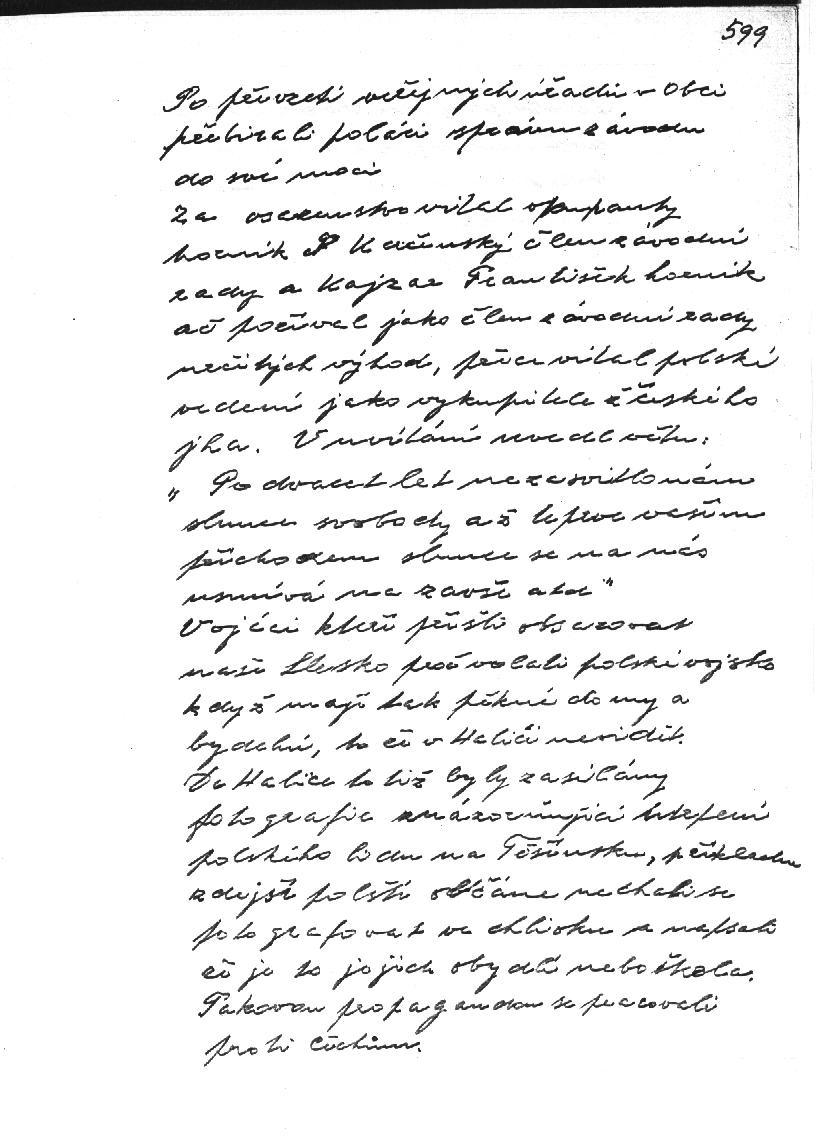 599
Po převzetí veřejných úřadů v Obci
přebírali poláci správu závodu
do své moci
Za osazenstvo vítal okupanty
horník P Kučínský člen závodní
rady a Kajzar František horník
ač požíval jako člen závodní rady
určitých výhod, přece vítal polské
vedení jako vykupitele z českého
jha. V uvítání uvedl větu:
„ Po dvacet let nezasvitlo nám
slunce svobody až teprve vaším
příchodem slunce se na nás
usmívá na zavše atd"
Vojáci kteří přišli obsazovat
naše Slesko proč volali polské vojsko
když mají tak pěkné domy a
bydelní, to čě v Haliči nevidít.
Do Haliče totiž byly zasílány
fotografie znázorňující utrpení
polského lidu na Těšínsku, příkladu
zdejší polští občáne nechali se
fotografovat ve chlívku a napsali
čě je to jejich obydlí nebo škola.
Takovou propagandou se pracovali
proti Čechům.